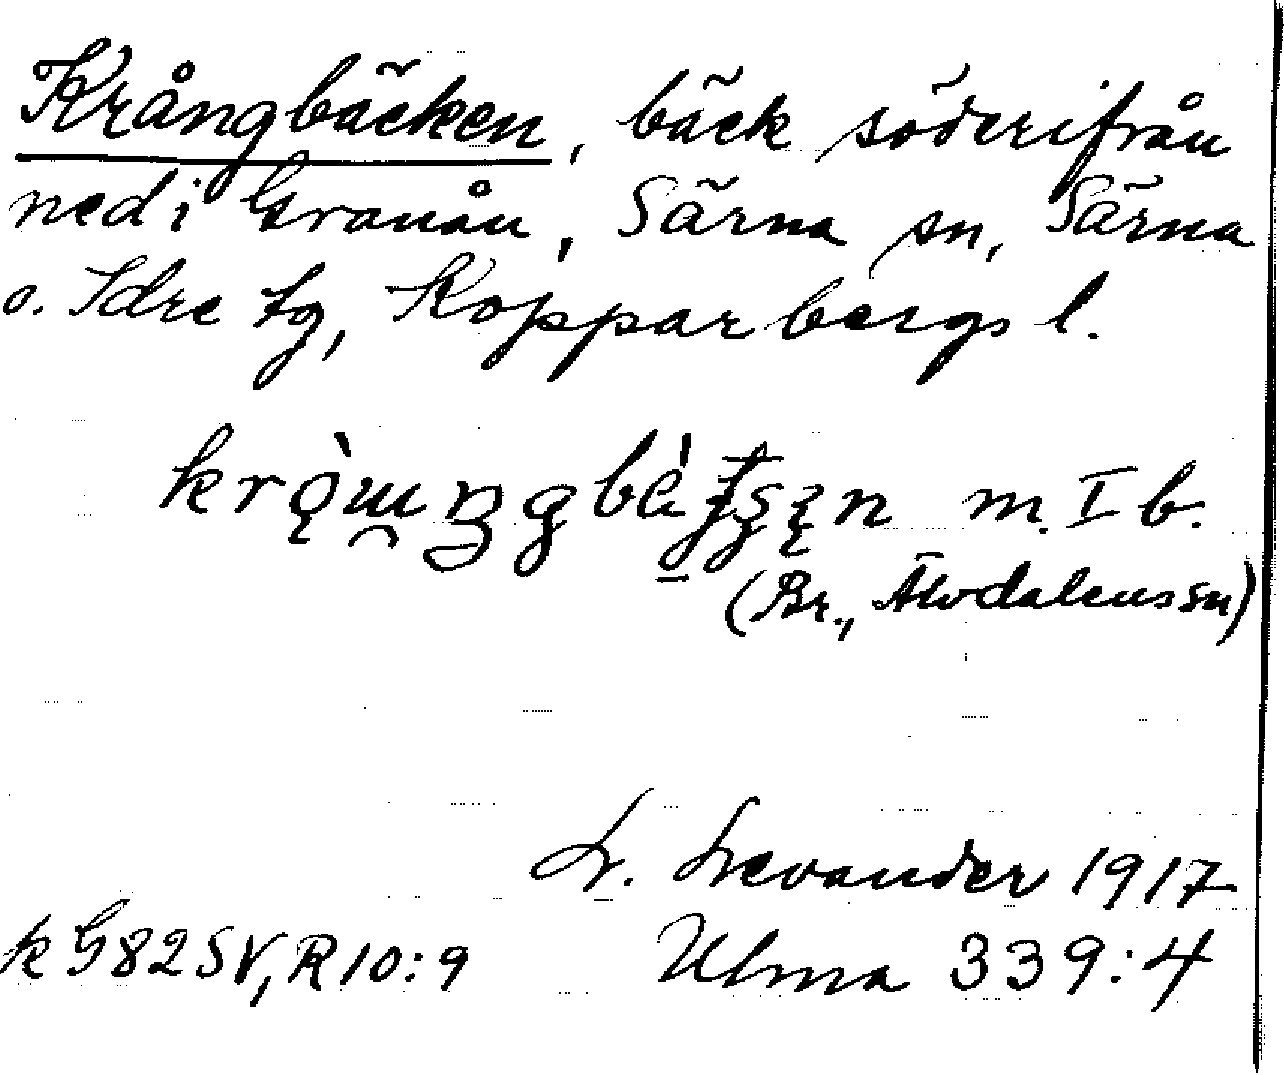 Krångbäcken, bäck söderifrån
ned i Granån, Särna sn, Särna
o. Idre tg, Kopparbergs l.
m. I b.
(Br., Älvdalens sn)
L. Levander 1917
k G82SV, R10:9 Ulma 339:4